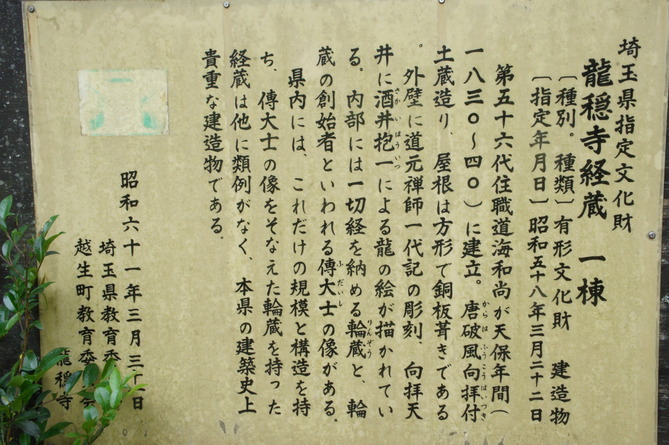 埼玉県指定文化財
龍穏寺経蔵 一棟
〔種別。種類〕有形文化財 建造物
〔指定年月日〕昭和五十八年三月二十二日
第五十六代住職道海和尚が天保年間(
一八三〇~四〇)に建立。唐破風向拝付
土蔵造り、屋根は方形で銅板葺きである
。外壁に道元禅師一代記の彫刻、向拝天
井に酒井抱一による龍の絵が描かれてい
る。内部には一切経を納める輪蔵と、輪
蔵の創始者といわれる傳大士の像がある。
県内には、これだけの規模と構造を持
ち、傳大士の像をそなえた輪蔵を持った
経蔵は他に類例がなく、本県の建築史上
貴重な建造物である。
昭和六十一年三月三十日
埼玉県教育委
越生町教育委 会
龍穏寺